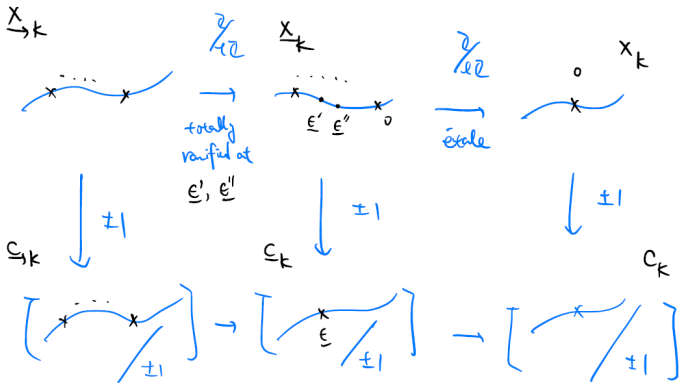 X→K
ℤ/ℓℤ
X̲K
ℤ/ℓℤ
XK
. . . .
. . . . .
o
ε̲′ ε̲″ o
totally
ramified at
ε̲′, ε̲″
étale
±1
±1
±1
C→K
C̲K
CK
. . . .
ε̲
±1
±1
±1